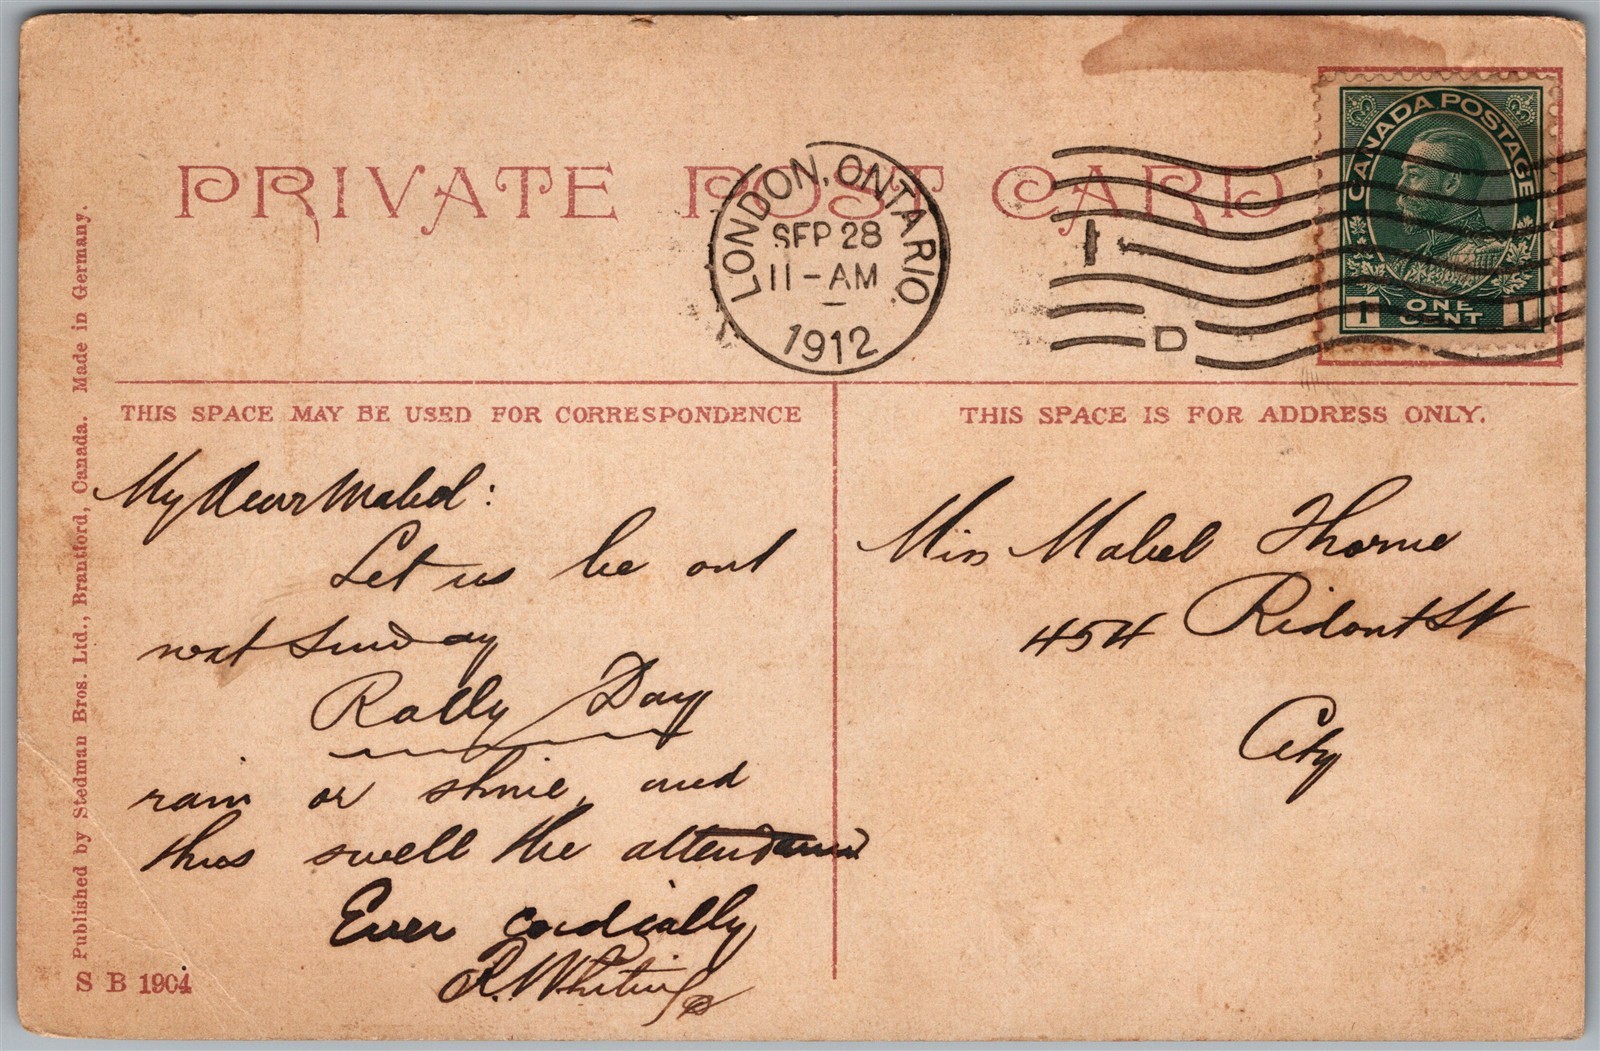 PRIVATE POST CARD
LONDON, ONTARIO.
SEP 28
11-AM
1912
I
D
CANADA POSTAGE
1 ONE CENT 1
THIS SPACE MAY BE USED FOR CORRESPONDENCE
THIS SPACE IS FOR ADDRESS ONLY.
My Dear Mabel:
Let us be out
next Sunday
Rally Day
rain or shine, and
thus swell the attendance
Ever cordially
R. Whiting
Miss Mabel Thorne
454 Ridout St
City
Published by Stedman Bros. Ltd., Brantford, Canada. Made in Germany.
S B 1904